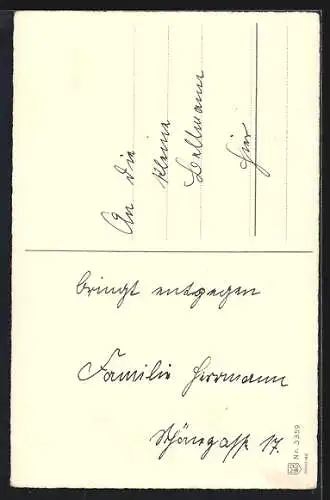 An die
kleine
Dellmann
hier
bringt entgegen
Familie Herrmann
Schönegasse 17.
Nr. 3359